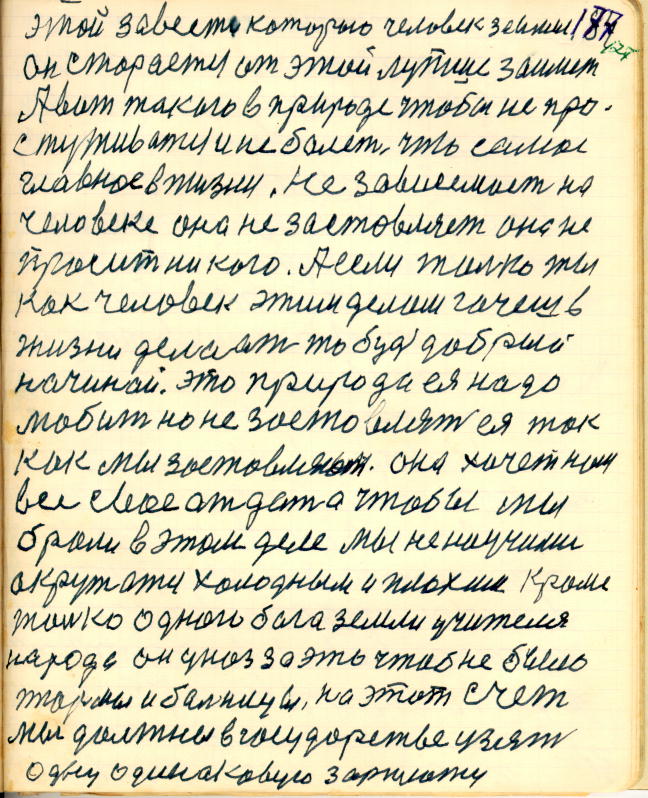 этой завести которою человек земли 187
он старается от этой лутше заимет
А вот такого в природе чтобы не про-
стуживатся и не болет, что самое
главное в жизни. Не зависемост на
человеке она не заставляет она не
просит никого. А если толко ты
как человек этим делам гочеш в
жизни делаат то буд добрый
начинай. это природа ея надо
любит но не заставлят ея так
как мы заставляем. она хочет нам
все свое атдат а чтобы мы
брали в этом деле мы не научили
окружатся холодным и плохим Кроме
толко одного бога земли учителя
народа он у нас за это чтоб не было
тюрмы и балницы, на этот счет
мы должны в государстве узят
одну одинаковую зарплату